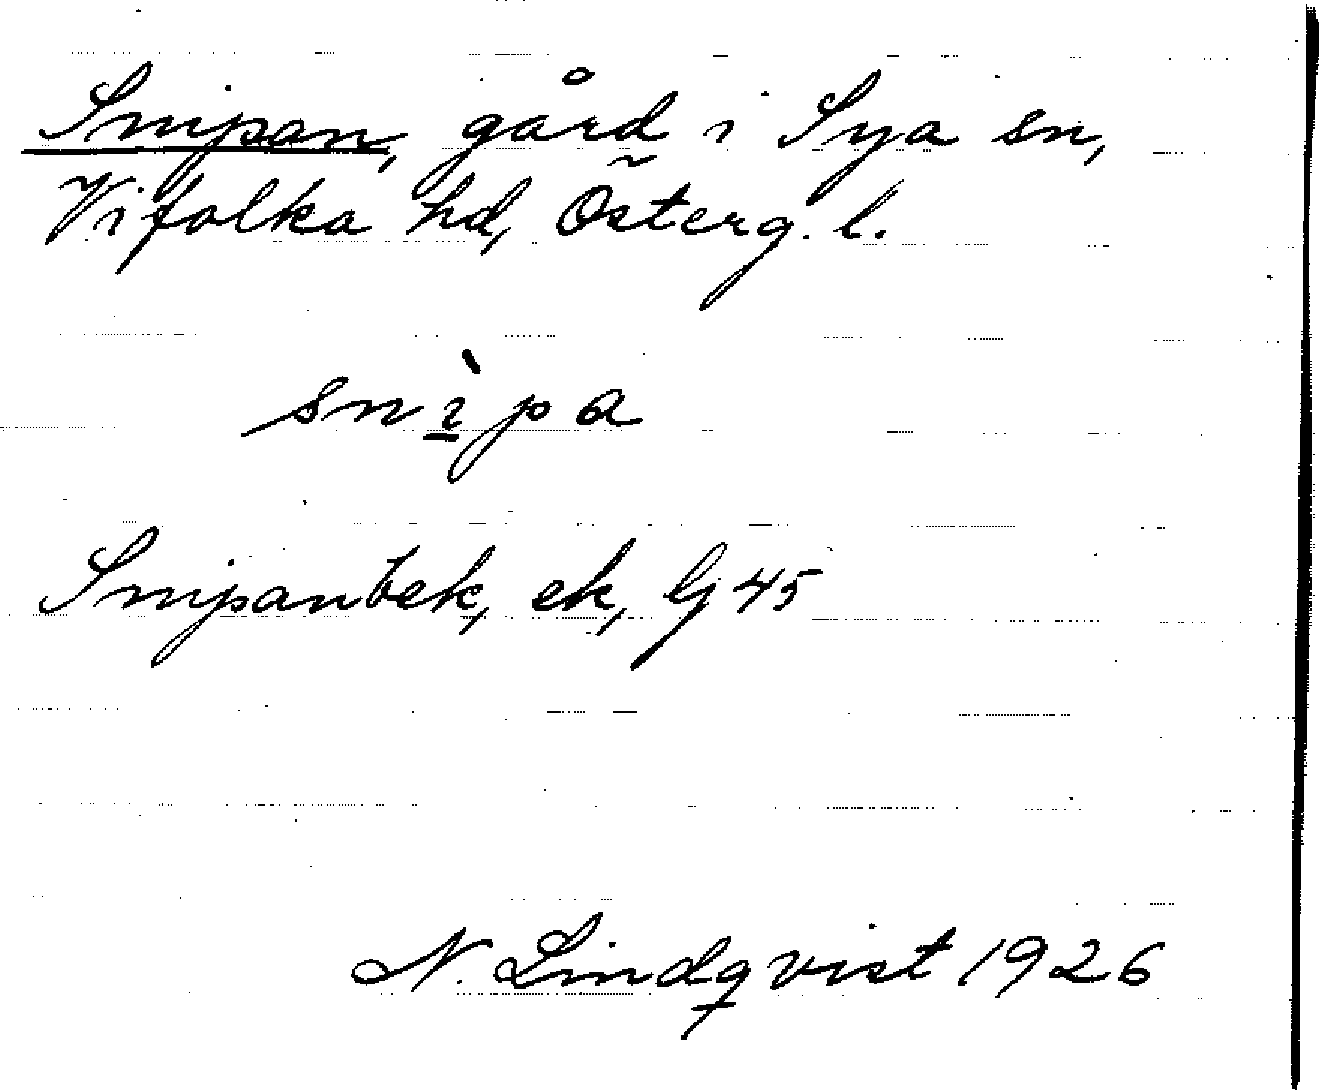 Snipan, gård i Sya sn,
Vifolka hd, Österg. l.
snìpa
Snipan bek, ek, lj 45
N. Lindqvist 1926